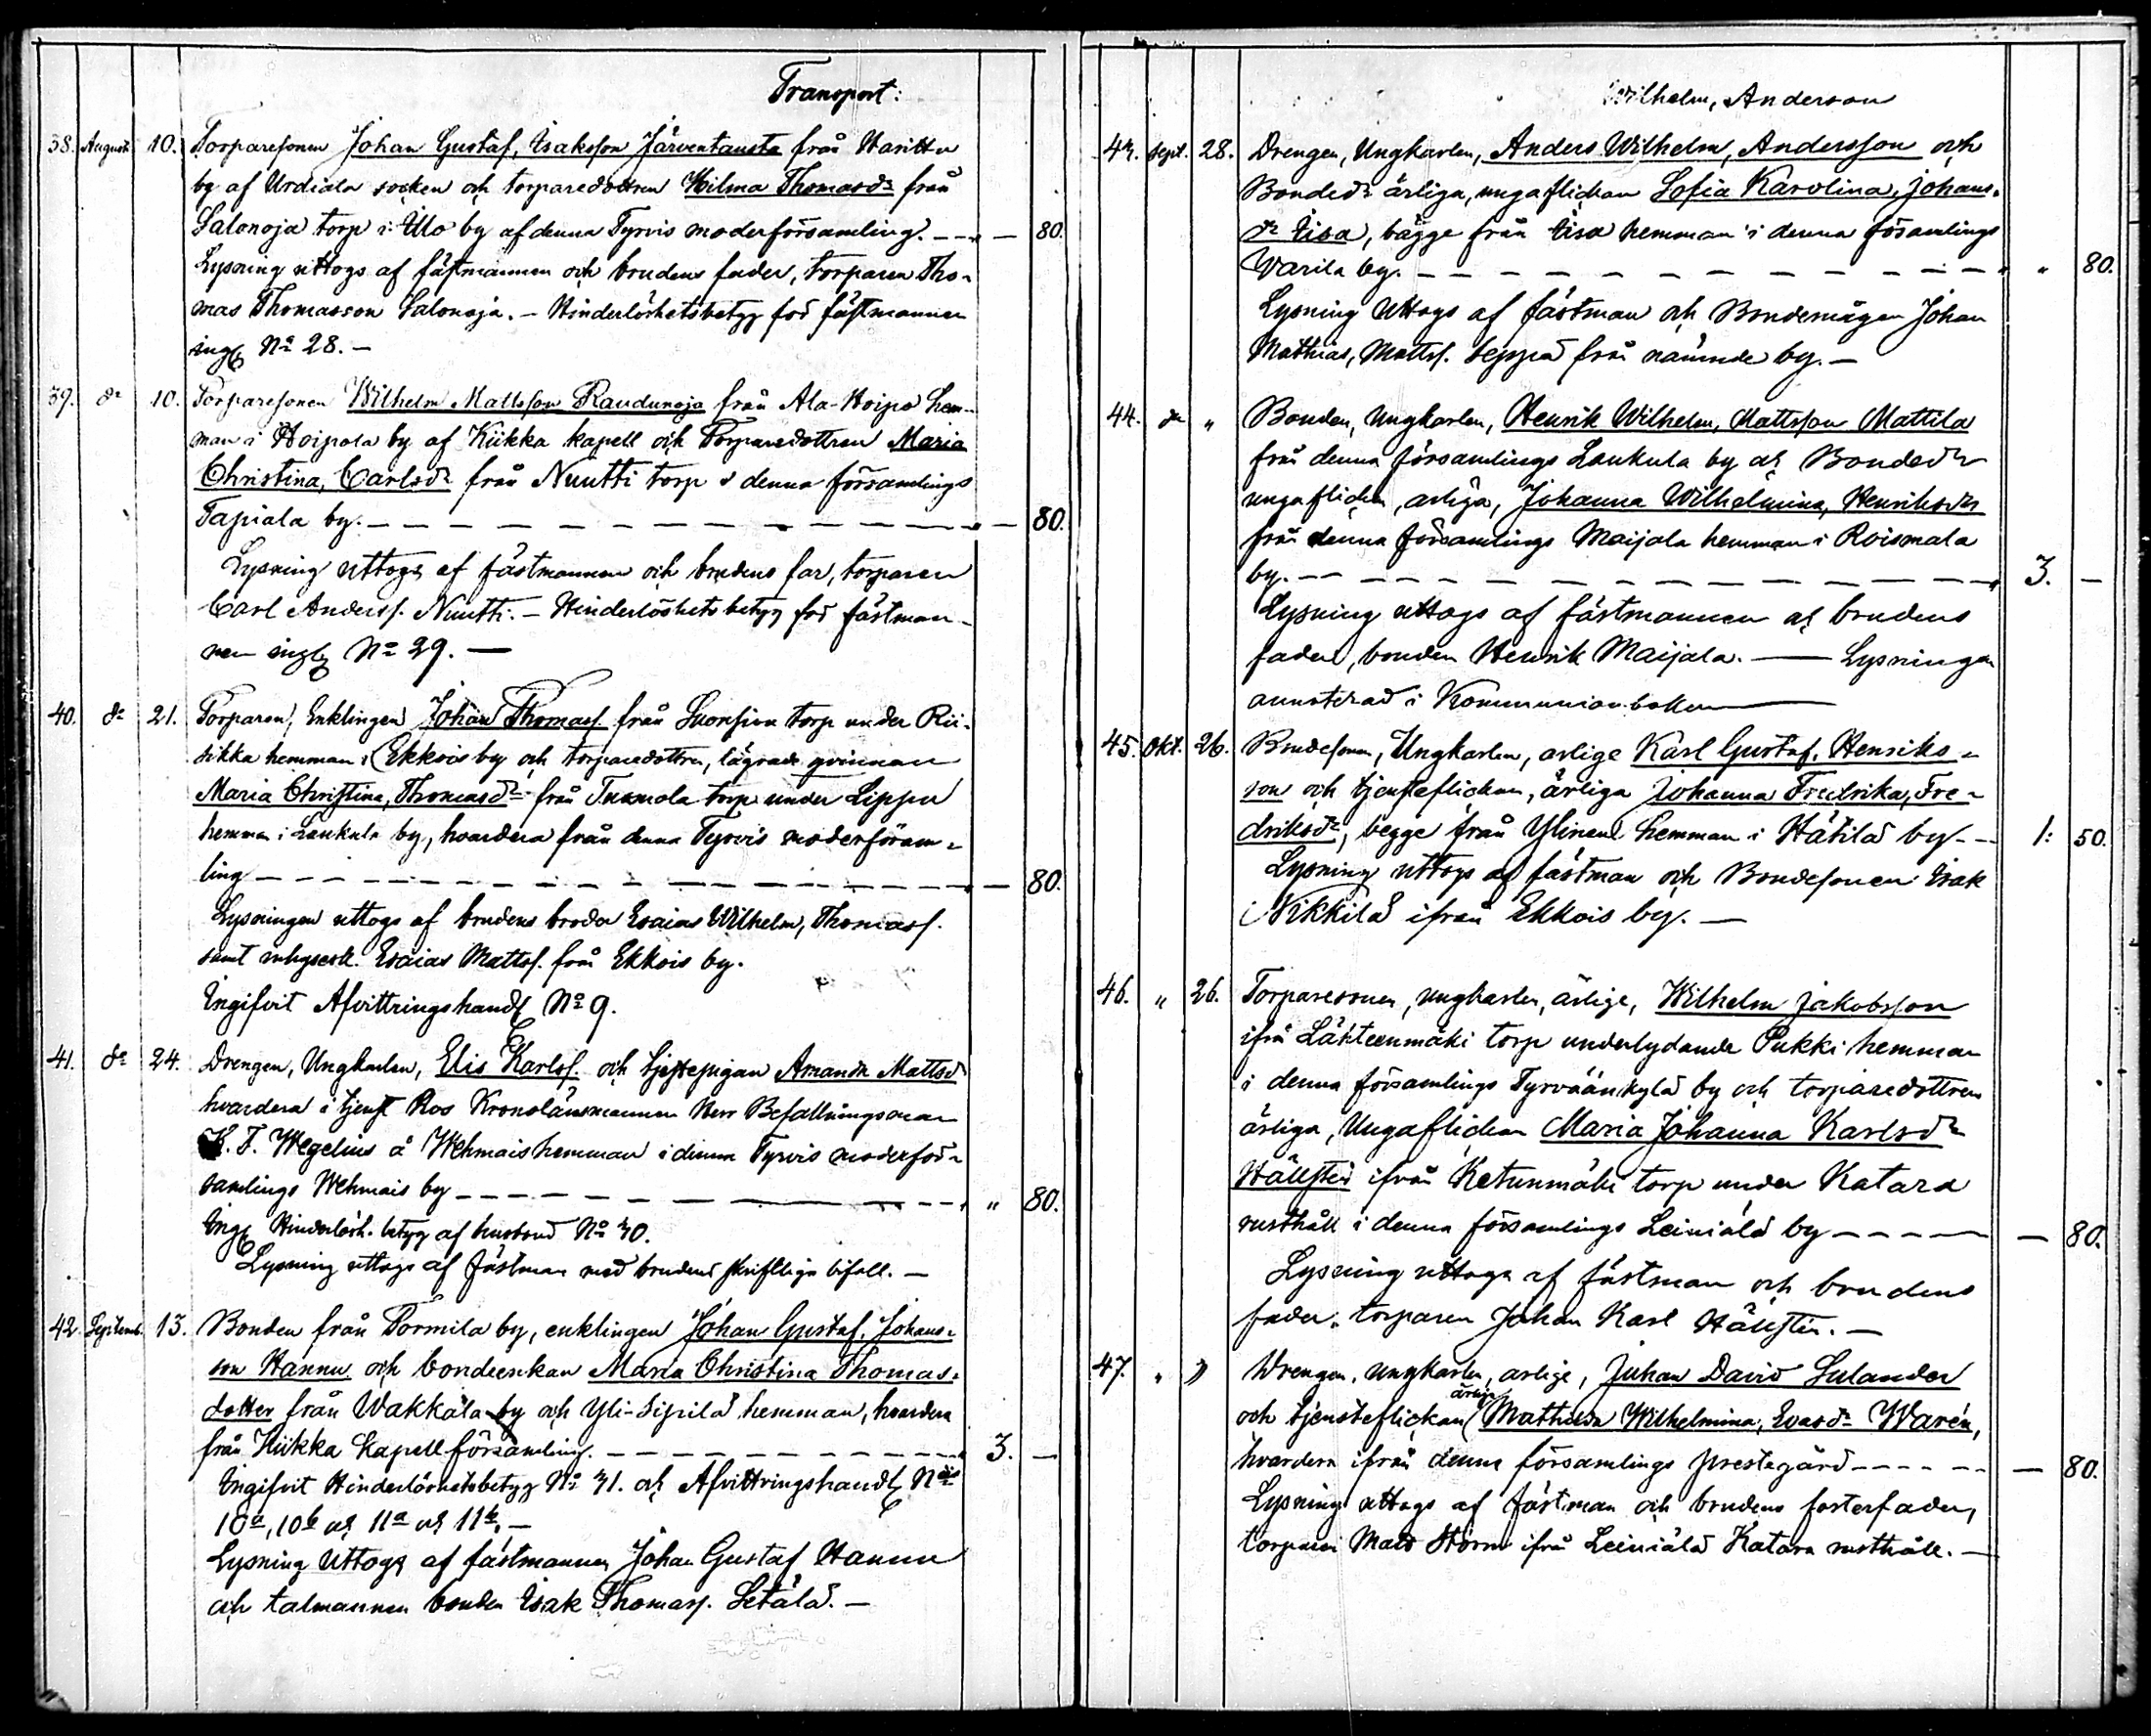 Transport:
38. August 10. Torparesonen Johan Gustaf, Isaksson Järventausta från Haritta
by af Urdiala socken och torparedottren Hilma Thomasdr från
Salonoja torp i Illo by af denna Tyrvis moderförsamling. — — — 80.
Lysning uttogs af fästmannen och brudens fader, torparen Tho-
mas Thomasson Salonoja. — Hinderlöshetsbetyg för fästmannen
ingf No 28. —
39. do 10. Torparesonen Wilhelm Mattsson Raudunoja från Ala-Hoipo hem-
man i Hoipola by af Kiikka kapell och Torparedottren Maria
Christina, Carlsdr från Nuutti torp i denna församlings
Tapiala by. — — — 80.
Lysning uttogs af fästmannen och brudens far, torparen
Carl Anderss. Nuutti. — Hinderlöshetsbetyg för fästman-
nen ingf No 29. —
40. do 21. Torparen, Enklingen Johan Thomass. från torp under Rii-
sikka hemman i Ekkois by och torparedottren, lägrade qvinnan
Maria Christina, Thomasdr från torp under Lippu
hemman i Laukula by, hvardera från denna Tyrvis moderförsam-
ling — — — 80.
Lysningen uttogs af brudens broder Esaias Wilhelm, Thomass.
samt Esaias Mattss. från Ekkois by.
Ingifvit Afvittringshandl No 9.
41. do 24. Drengen, Ungkarlen, Elis Karlss. och tjenstepigan Amanda Mattsd
hvardera i tjenst hos Kronolänsmannen Herr Befallningsman
K. F. Wegelius å Wehmais hemman i denna Tyrvis moderför-
samlings Wehmais by — — — " 80.
Ingf Hinderlösh. betyg af husbond No 30.
Lysning uttogs af fästman med brudens skriftliga bifall. —
42. Septemb. 13. Bonden från Tormila by, enklingen Johan Gustaf, Johans-
son Hannu och bondeenkan Maria Christina Thomas-
dotter från Wakkala by och Yli-Sipilä hemman, hvardera
från Kiikka kapellförsamling. — — — 3. —
Ingifvit Hinderlöshetsbetyg No 31. och Afvittringshandl Nris
10a, 10b och 11a och 11b. —
Lysning Uttogs af fästmannen Johan Gustaf Hannu
och talmannen bonden Isak Thomass. Setälä. —
Wilhelm, Anderson
43. Sept. 28. Drengen, Ungkarlen, Anders Wilhelm, Andersson och
Bondedr ärliga, unga flickan Sofia Karolina, Johans-
dr Iisa, bägge från Iisa hemman i denna församlings
Warila by. — — — " 80.
Lysning Uttogs af fästman och Bondemågen Johan
Mathias, Mattss. Seppä från nämnde by. —
44. do " Bonden, Ungkarlen, Henrik Wilhelm, Mattsson Mattila
från denna församlings Laukula by och Bondedr
unga flickan, ärliga, Johanna Wilhelmina, Henriksdr
från denna församlings Maijala hemman i Roismala
by. — — — 3. —
Lysning uttogs af fästmannen och brudens
fader, bonden Henrik Maijala. — Lysningen
annoterad i Kommunionboken —
45. Okt. 26. Bondesonen, Ungkarlen, ärlige Karl Gustaf, Henriks-
son och tjensteflickan, ärliga Johanna Fredrika, Fre-
driksdr, begge från Ylinen hemman i Hätilä by — — 1: 50.
Lysning uttogs af fästman och Bondesonen Isak
Nikkilä ifrån Ekkois by. —
46. " 26. Torparesonen, ungkarlen, ärlige, Wilhelm Jakobsson
ifrån Lähteenmäki torp underlydande Pukki hemman
i denna församlings Tyrväänkylä by och torparedottren
ärliga, Ungaflickan Maria Johanna Karlsdr
Hällsten ifrån Ketunmäki torp under Katara
rusthåll i denna församlings Leiniälä by — — — 80.
Lysning uttogs af fästman och brudens
fader, torparen Johan Karl Hällsten. —
47. " " Drengen, ungkarlen, ärlige, Juhan David Sulander
och tjensteflickan, ärliga Mathilda Wilhelmina, Evasdr Warén,
hvardera ifrån denna församlings prestegård — — — 80.
Lysning uttogs af fästman och brudens fosterfader,
torparen Mats Storm ifrån Leiniälä Katara rusthåll. —